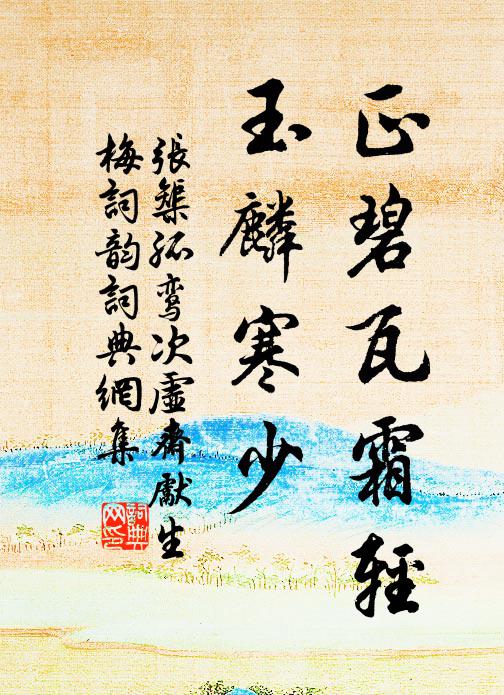 正碧瓦霜輕
玉麟寒少
張榘孤鸾次虛齋獻生
梅詞韵詞典網集
詞典
网印